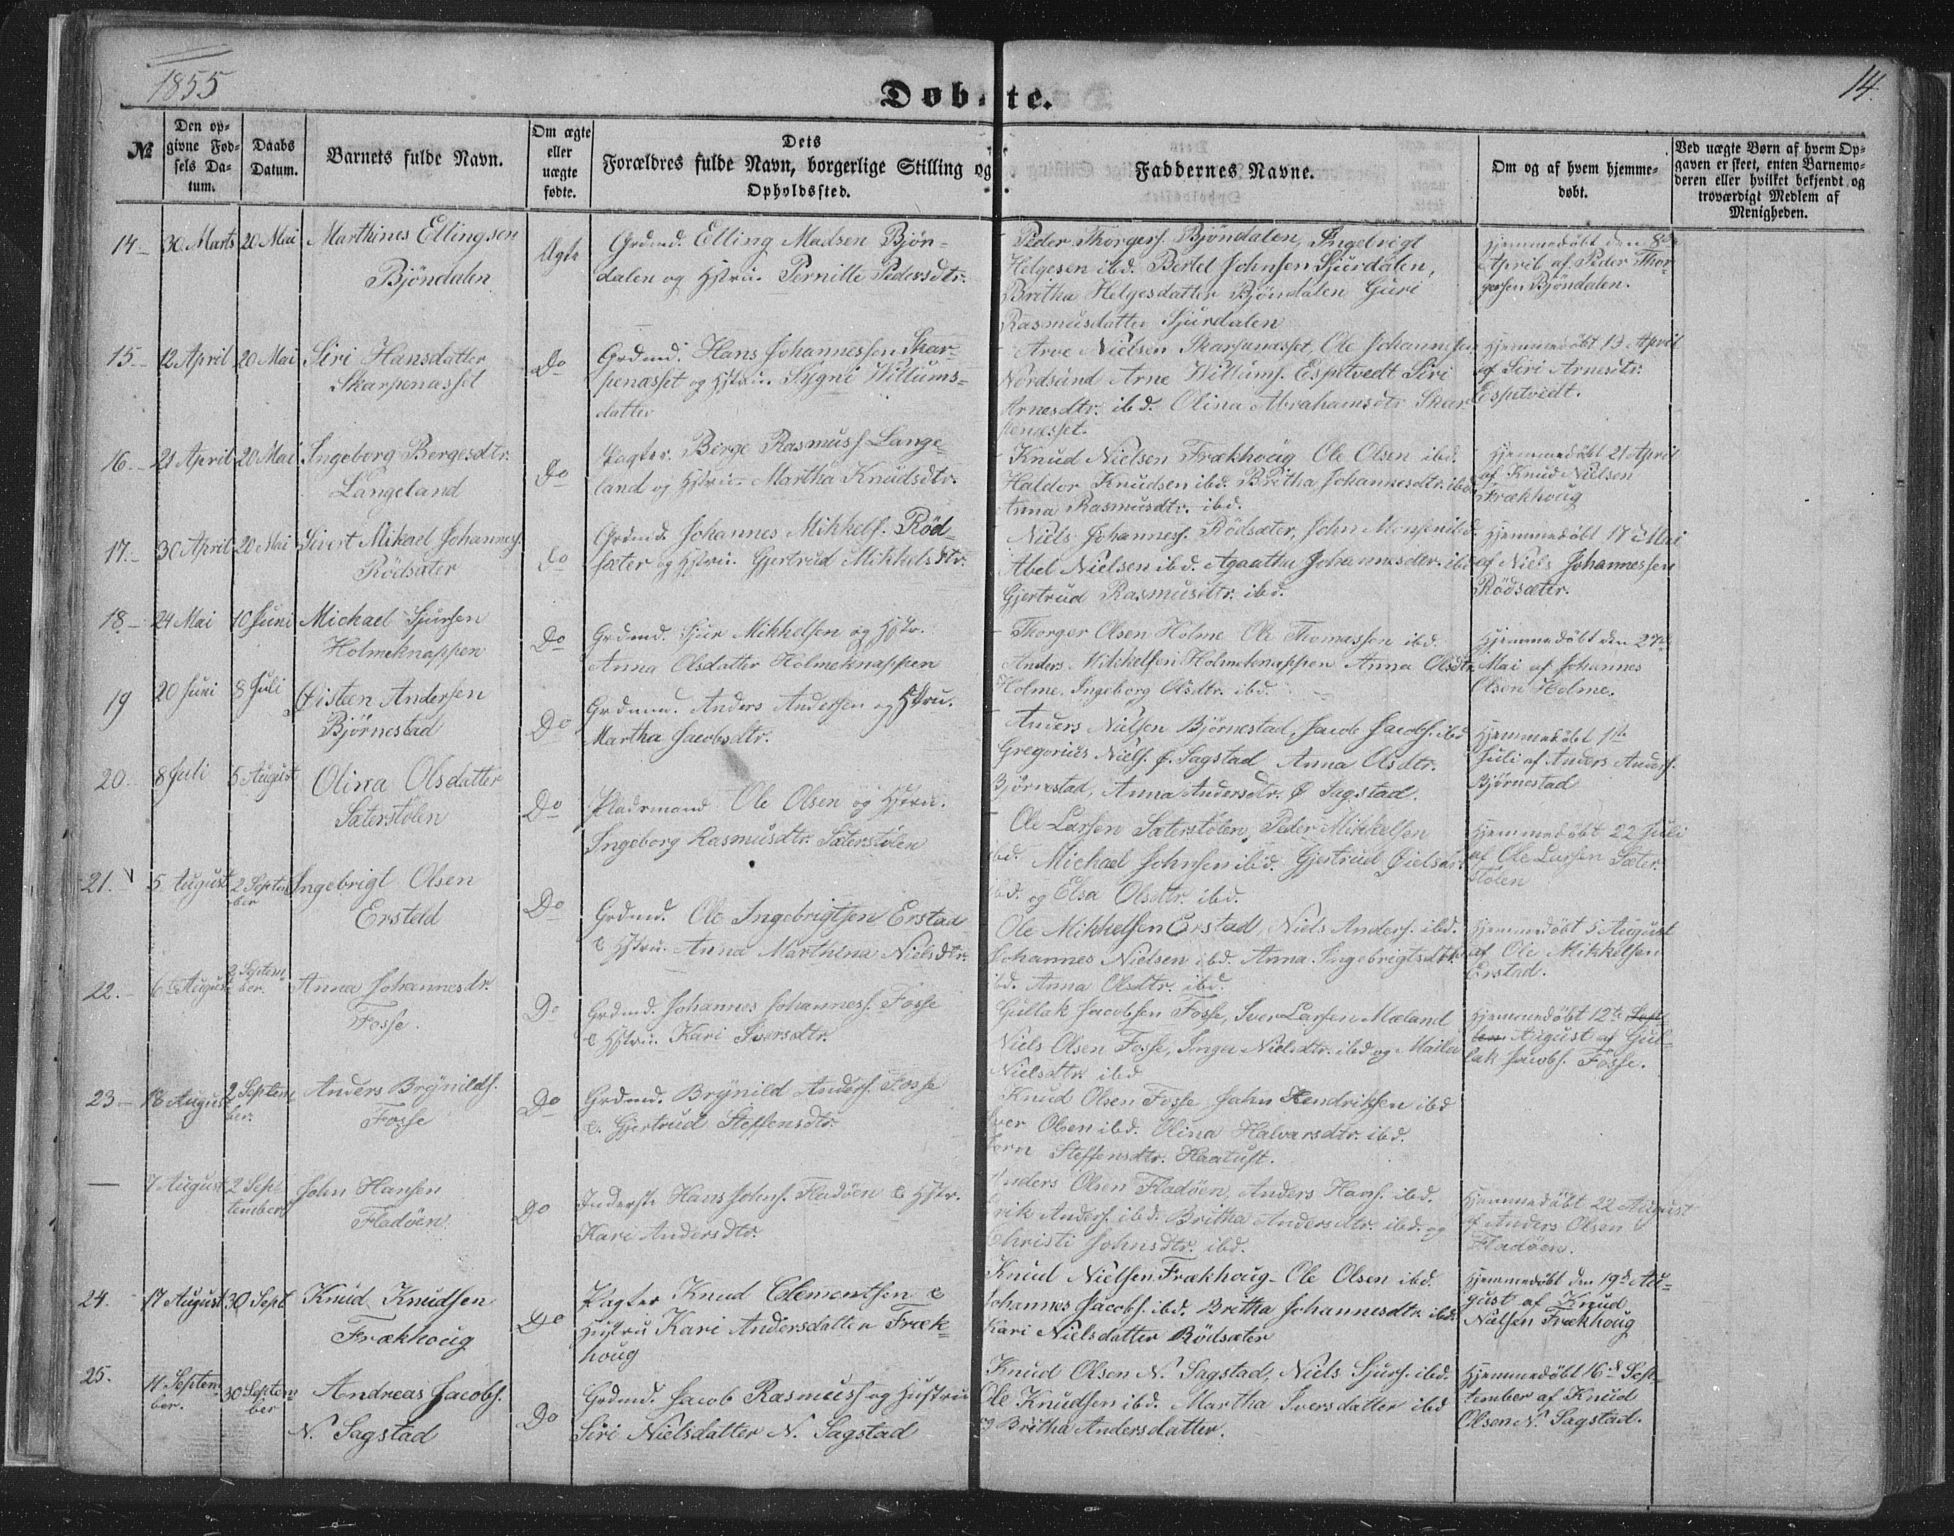 1855
Døbte.
14.
№
Den op-
givne Fød-
sels Da-
tum.
Daabs
Datum.
Barnets fulde Navn.
Om ægte
eller
uægte
fødte.
Dets
Forældres fulde Navn, borgerlige Stilling og
Opholdssted.
Faddernes Navne.
Om og af hvem hjemme-
døbt.
Ved uægte Børn af hvem Op-
gaven er skeet, enten Barnemo-
deren eller hvilket bekjendt og
troværdigt Medlem af
Menigheden.
14. 30 Marts 20 Mai
Marthines Ellingsen
Bjöndalen
Ægte
Grdmd. Elling Madsen Bjön-
dalen og Hstru. Pernille Pedersdtr.
Peder Thorgers. Bjöndalen, Ingebrigt
Helgesen ibd. Bertel Johnsen Sjurdalen,
Britha Helgesdatter Bjöndalen Guri
Rasmusdatter Sjurdalen
Hjemmedöbt den 8de
April af Peder Thor-
gersen Bjöndalen.
15. 12 April 20 Mai
Siri Hansdatter
Skarpenæsset
Do
Grdmd. Hans Johannessen Skar-
penæsset og Hstru. Sygni Willums-
datter
Arve Nielsen Skarpenæsset, Ole Johannesen
Nordsund Arne Willums. Espetvedt Siri
Arnesdtr. ibd. Olina Abrahamsdtr Skar
penæsset.
Hjemmedöbt 13 April
af Siri Arnesdtr.
Espetvedt.
16. 21 April 20 Mai
Ingeborg Bergesdtr.
Langeland
Do
Pagter. Berge Rasmuss. Lange-
land og Hstru. Martha Knudsdtr.
Knud Nielsen Frækhoug Ole Olsen ibd.
Haldor Knudsen ibd. Britha Johannesdtr. ibd
Anna Rasmusdtr. ibd.
Hjemmedöbt 21 April
af Knud Nielsen
Frækhoug
17. 30 April 20 Mai
Sivert Mikael Johanness.
Rödsæter
Do
Grdmd. Johannes Mikkels. Röd-
sæter og Hstru. Gjertrud Mikkelsdtr.
Niels Johanness. Rödsæter, John Monsen ibd.
Abel Nielsen ibd. Agaatha Johannesdtr. ibd
Gjertrud Rasmusdtr. ibd.
Hjemmedöbt 17 Mai
af Niels Johannessen
Rödsæter.
18. 24 Mai 10 Juni
Michael Sjursen
Holmeknappen
Do
Grdmd. Sjur Mikkelsen og Hstr.
Anna Olsdatter Holmeknappen
Thorger Olsen Holme Ole Thomassen ibd
Anders Mikkelsen Holmeknappen Anna Olsdtr.
Holme. Ingeborg Olsdtr. ibd.
Hjemmedöbt den 27de
Mai af Johannes
Olsen Holme.
19 20 Juni 8 Juli
Øisten Andersen
Bjørnestad
Do
Grdmd. Anders Andersen og Hstru.
Martha Jacobsdtr.
Anders Nielsen Björnestad, Jacob Jacobs. ibd
Gregorius Niels. Ø. Sagstad, Anna Olsdtr.
Björnestad, Anna Andersdtr. Ø Sagstad.
Hjemmedöbt 1ste
Juli af Anders Anders.
Björnestad
20. 8 Juli 5 August
Olina Olsdatter
Sæterstølen
Do
Pladsmand Ole Olsen og Hstru.
Ingeborg Rasmusdtr. Sæterstølen
Ole Larsen Sæterstølen, Peder Mikkelsen
ibd. Michael Johnsen ibd. Gjertrud
ibd. og Elsa Olsdtr. ibd.
Hjemmedöbt 22 Juli
af Ole Larsen Sæter-
stølen
21. 5 August 2 Septem
ber
Ingebrigt Olsen
Ersteld
Do
Grdmd. Ole Ingebrigtsen Erstad
& Hstru. Anna Marthina Nielsdtr.
Ole Mikkelsen Erstad, Niels Anders. ibd.
Johannes Nielsen ibd. Anna Ingebrigtsdtr.
ibd. Anna Olsdtr. ibd.
Hjemmedöbt 5 August
af Ole Mikkelsen
Erstad.
22. 6 August 2 Septem-
ber.
Anna Johannesdr.
Fosse.
Do
Grdmd. Johannes Johanness. Fosse
& Hstru. Kari Iversdtr.
Gullak Jacobsen Fosse, Iver Larsen Mæland
Niels Olsen Fosse, Inga Nielsdtr. ibd og Maila
Nielsdtr. ibd
Hjemmedöbt 12te Sept
ber August af Gul-
lak Jacobs. Fosse.
23 18 August 2 Septem
ber.
Anders Brynilds.
Fosse
Do
Grdmd. Brynild Anders. Fosse
& Gjertrud Steffensdtr.
Knud Olsen Fosse John Hendriksen ibd
Iver Olsen ibd. Olina Halvarsdtr. ibd.
Steffensdtr. Haatuft.
— 7 August 2 Sep-
tember
John Hansen
Fladöen
Do
Inderste Hans Johns. Fladöen & Hstr.
Kari Andersdtr.
Anders Olsen Fladöen, Anders Hans. ibd.
Erik Anders. ibd. Britha Andersdtr. ibd. og
Christi Johnsdtr. ibd.
Hjemmedöbt 22 August
af Anders Olsen
Fladöen.
24. 17 August 30 Sept
Knud Knudsen
Frækhoug
Do
Pagter Knud Clementsen &
Hustru Kari Andersdatter Fræk-
houg
Knud Nielsen Frækhoug Ole Olsen ibd.
Johannes Jacobs. ibd. Britha Johannesdtr. ibd.
Kari Nielsdatter Rödsæter
Hjemmedöbt den 19de Au-
gust af Knud
Nielsen Frækhoug
25. 11 Septem-
ber. 30 Septem-
ber
Andreas Jacobs.
N. Sagstad
Do
Grdmd. Jacob Rasmuss. og Hustru
Siri Nielsdatter N. Sagstad
Knud Olsen N. Sagstad, Niels Sjurs. ibd.
Ole Knudsen ibd. Martha Iversdatter ibd
og Britha Andersdatter.
Hjemmedöbt 16de Sep-
tember af Knud
Olsen N. Sagstad.